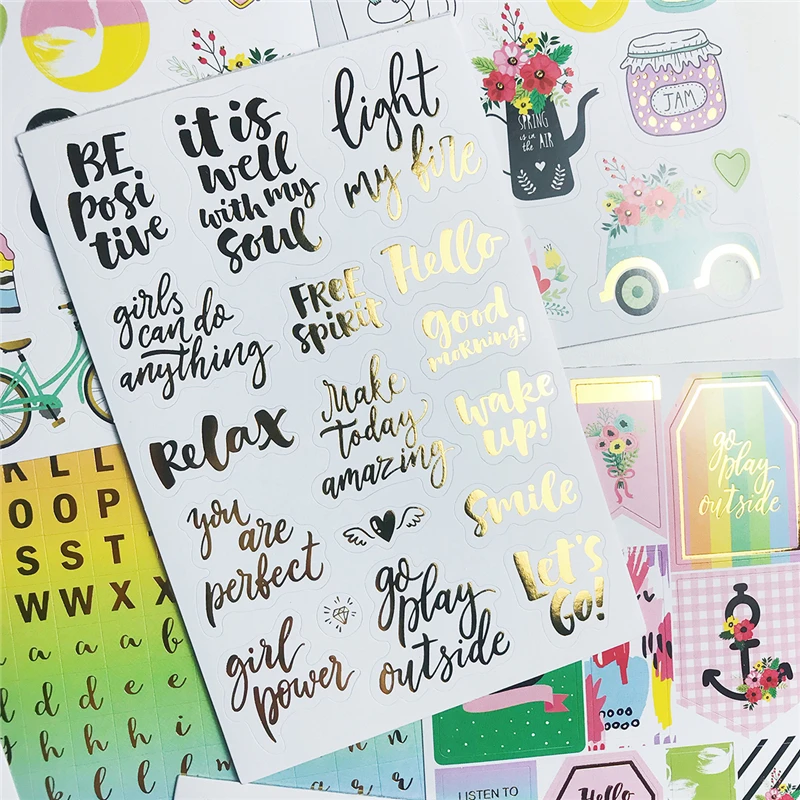 BE
posi
tive
it is
well
with my
soul
light
my fire
girls
can do
anything
FREE
spirit
Hello
good
morning!
Relax
Make
today
amazing
wake
up!
you
are
perfect
smile
girl
power
go
play
outside
Let's
Go!
SPRING
is in
the AIR
JAM
go
play
outside
LISTEN TO
Hello
K L L
O O P
S S T
W W X X
a a a b
d d e e
g h h i
k l l